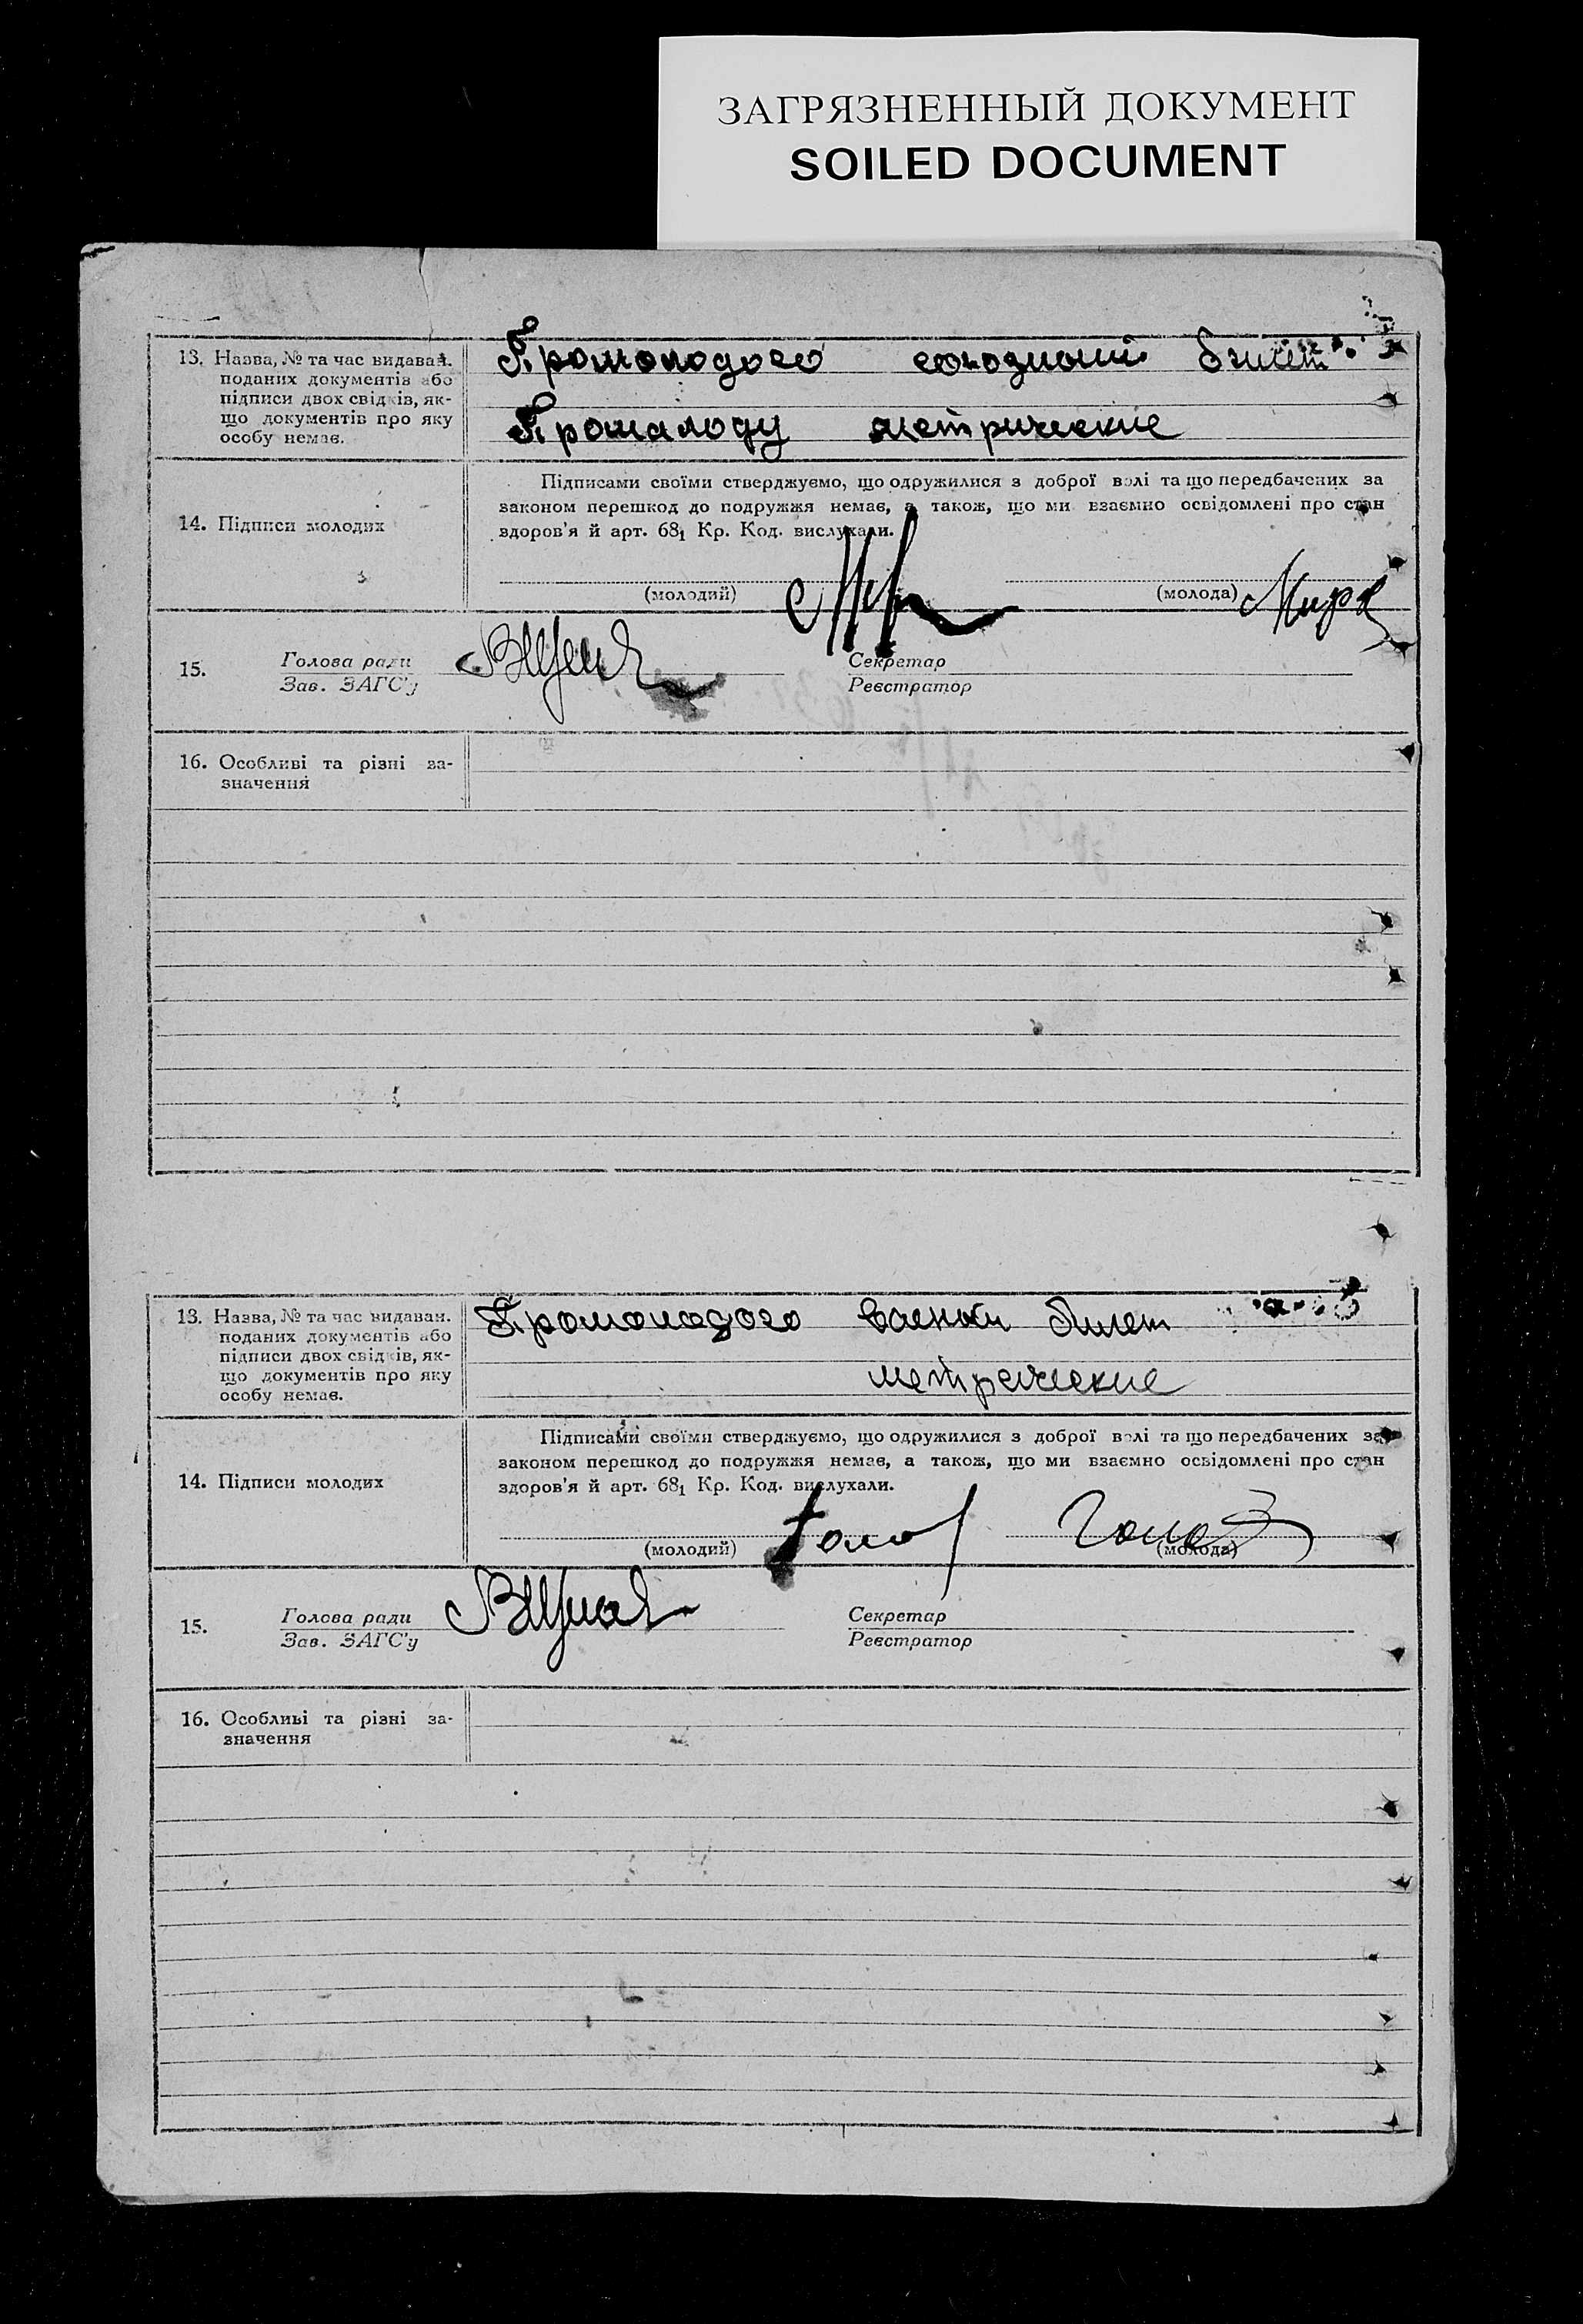 ЗАГРЯЗНЕННЫЙ ДОКУМЕНТ
SOILED DOCUMENT
13. Назва, № та час видаван.
поданих документів або
підписи двох свідків, як-
що документів про яку
особу немає.
Промолодого союзный билет
Промалоду метрические
14. Підписи молодих
Підписами своїми стверджуємо, що одружилися з доброї волі та що передбачених за
законом перешкод до подружжя немає, а також, що ми взаємно освідомлені про стан
здоров'я й арт. 68₁ Кр. Код. вислухали.
(молодий) (молода)
15. Голова ради
Зав. ЗАГС'у
Секретар
Реєстратор
16. Особливі та різні за-
значення
13. Назва, № та час видаван.
поданих документів або
підписи двох свідків, як-
що документів про яку
особу немає.
Промолодого военный билет
метрические
14. Підписи молодих
Підписами своїми стверджуємо, що одружилися з доброї волі та що передбачених за
законом перешкод до подружжя немає, а також, що ми взаємно освідомлені про стан
здоров'я й арт. 68₁ Кр. Код. вислухали.
(молодий) (молода)
15. Голова ради
Зав. ЗАГС'у
Секретар
Реєстратор
16. Особливі та різні за-
значення